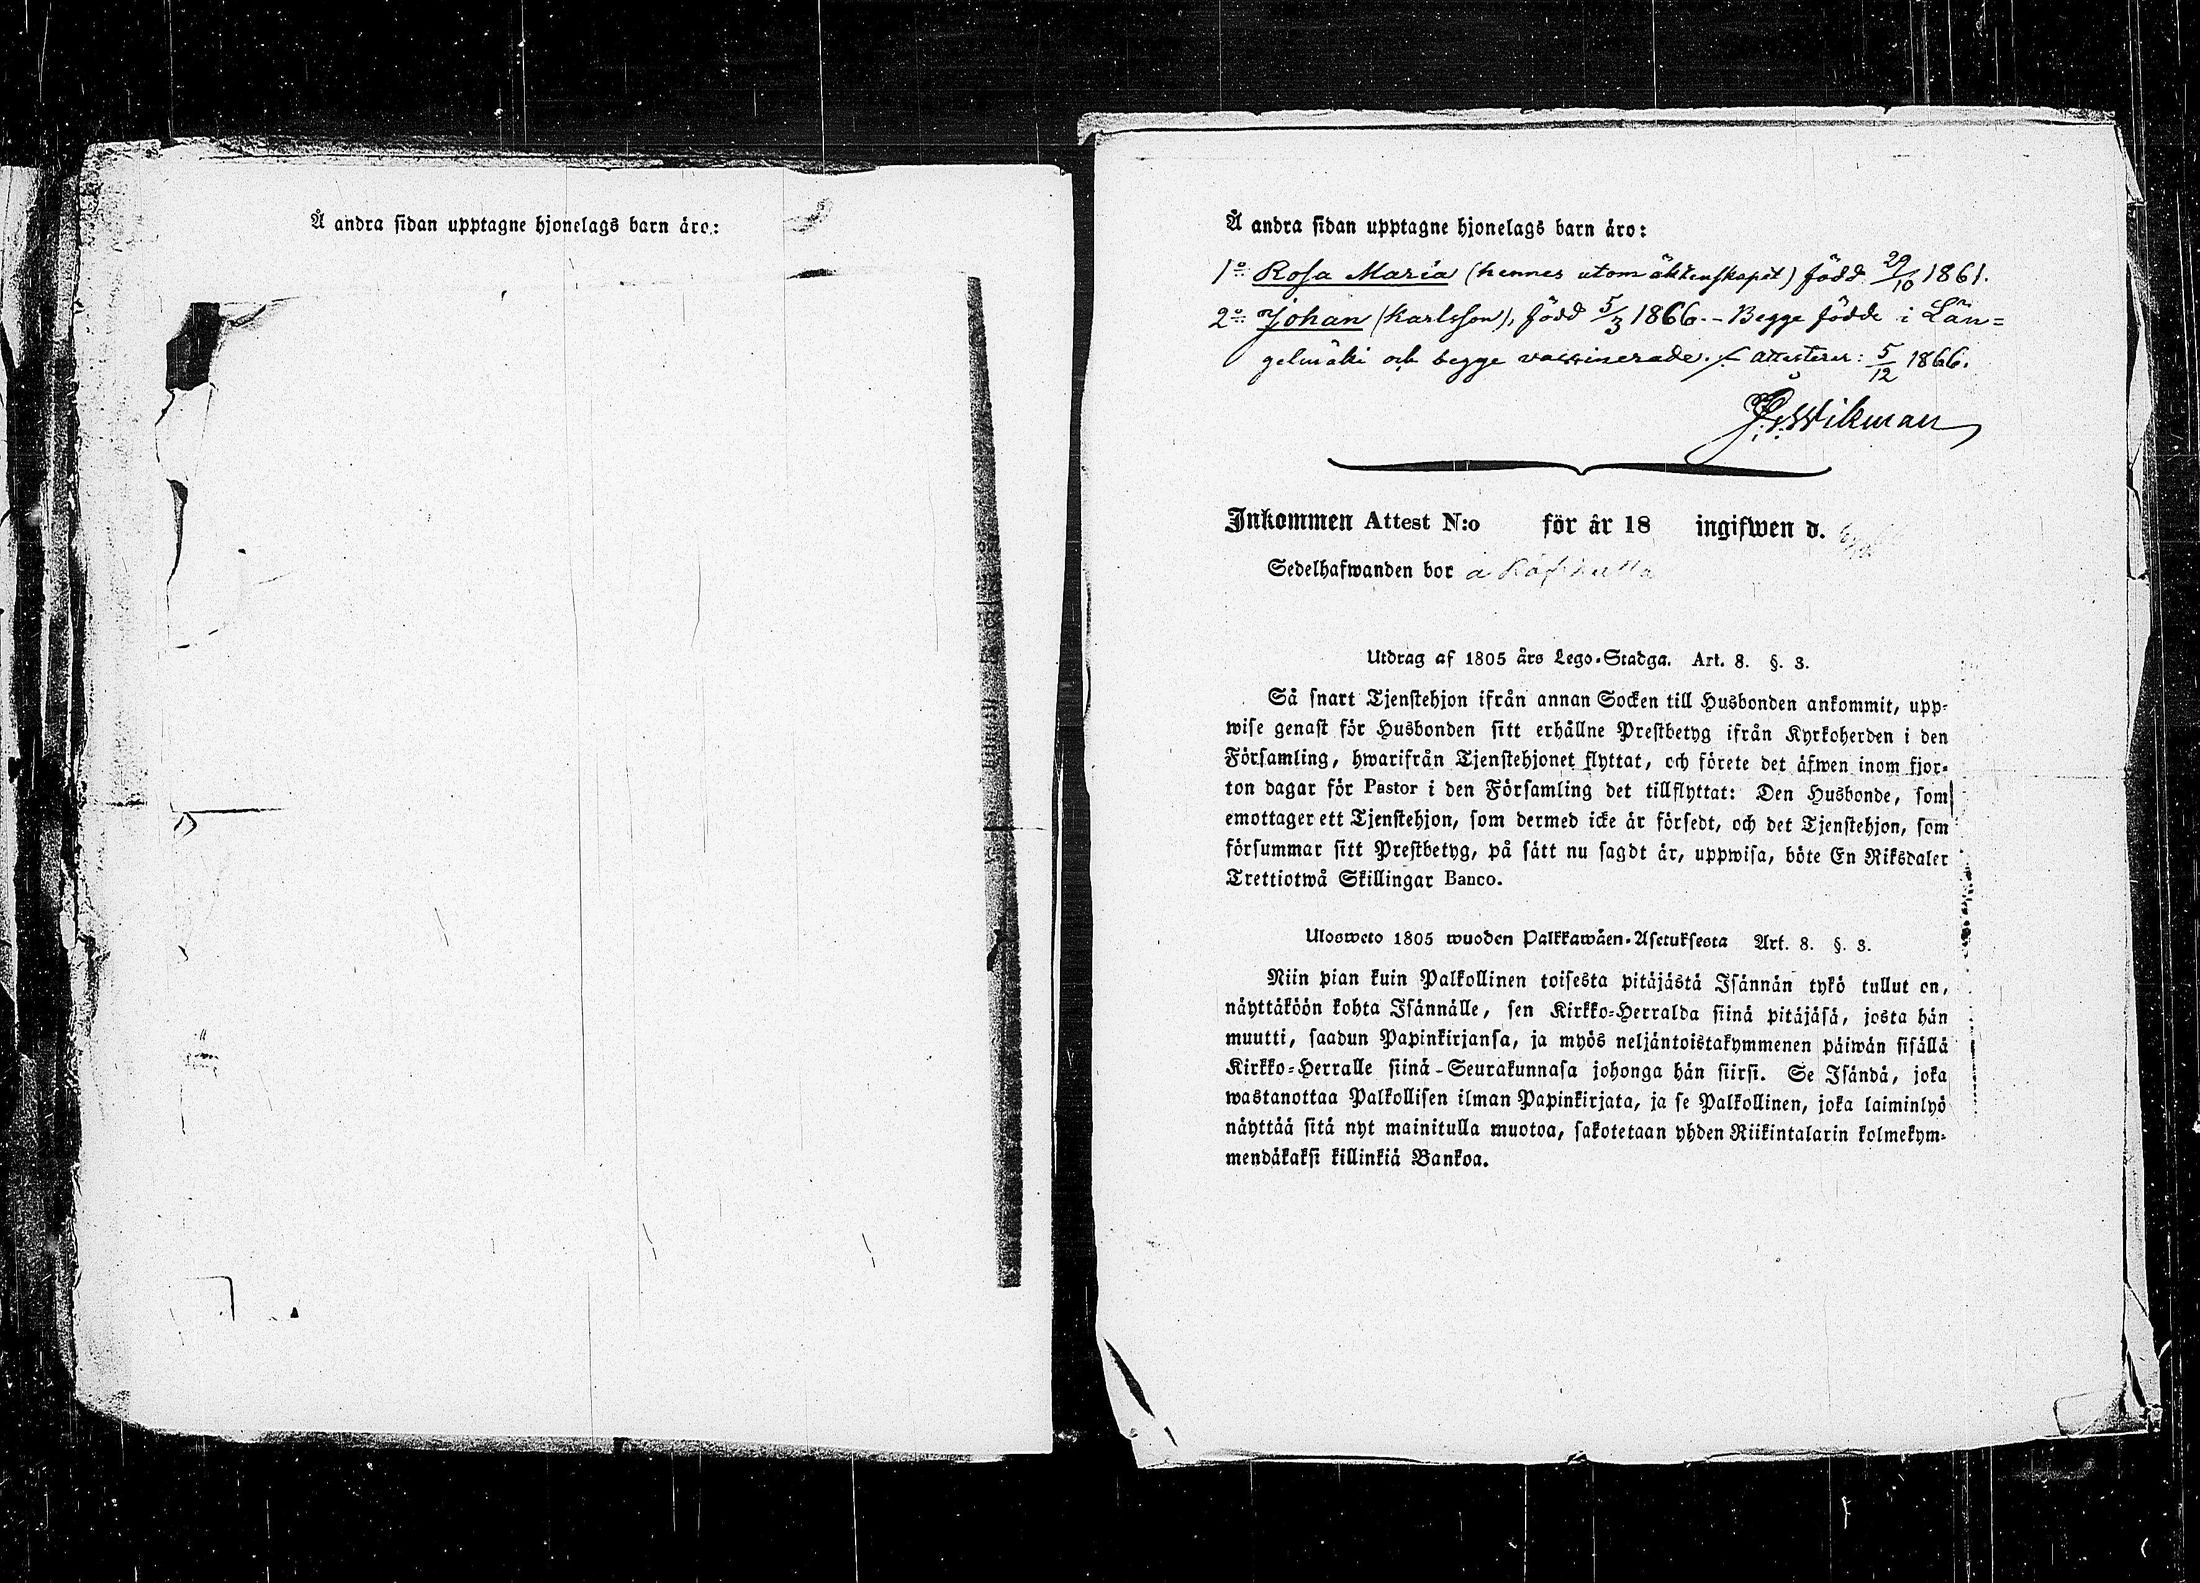 Å andra sidan upptagne hjonelags barn äro:
Å andra sidan upptagne hjonelags barn äro:
1o: Rosa Maria (hennes utom äktenskapet) född 29/10 1861.
2o: Johan (Karlsson), född 5/3 1866. - Begge födde i Län=
gelmäki och begge vaccinerade. attesterer: 5/12 1866.
Wikman
Inkommen Attest N:o för år 18 ingifwen d.
Sedelhafwanden bor å
Utdrag af 1805 års Lego-Stadga. Art. 8. §. 3.
Så snart Tjenstehjon ifrån annan Socken till Husbonden ankommit, upp-
wise genast för Husbonden sitt erhållne Prestbetyg ifrån Kyrkoherden i den
Församling, hwarifrån Tjenstehjonet flyttat, och förete det äfwen inom fjor-
ton dagar för Pastor i den Församling det tillflyttat: Den Husbonde, som
emottager ett Tjenstehjon, som dermed icke är försedt, och det Tjenstehjon, som
försummar sitt Prestbetyg, på sätt nu sagdt är, uppwisa, böte En Riksdaler
Trettiotwå Skillingar Banco.
Ulosweto 1805 wuoden Palkkawäen-Asetuksesta Art. 8. §. 3.
Niin pian kuin Palkollinen toisesta pitäjästä Isännän tykö tullut on,
näyttäköön kohta Isännälle, sen Kirkko-Herralda siinä pitäjäsä, josta hän
muutti, saadun Papinkirjansa, ja myös neljäntoistakymmenen päiwän sisällä
Kirkko-Herralle siinä-Seurakunnasa johonga hän siirsi. Se Isändä, joka
wastanottaa Palkollisen ilman Papinkirjata, ja se Palkollinen, joka laiminlyö
näyttää sitä nyt mainitulla muotoa, sakotetaan yhden Riikintalarin kolmekym-
mendäkaksi killinkiä Bankoa.